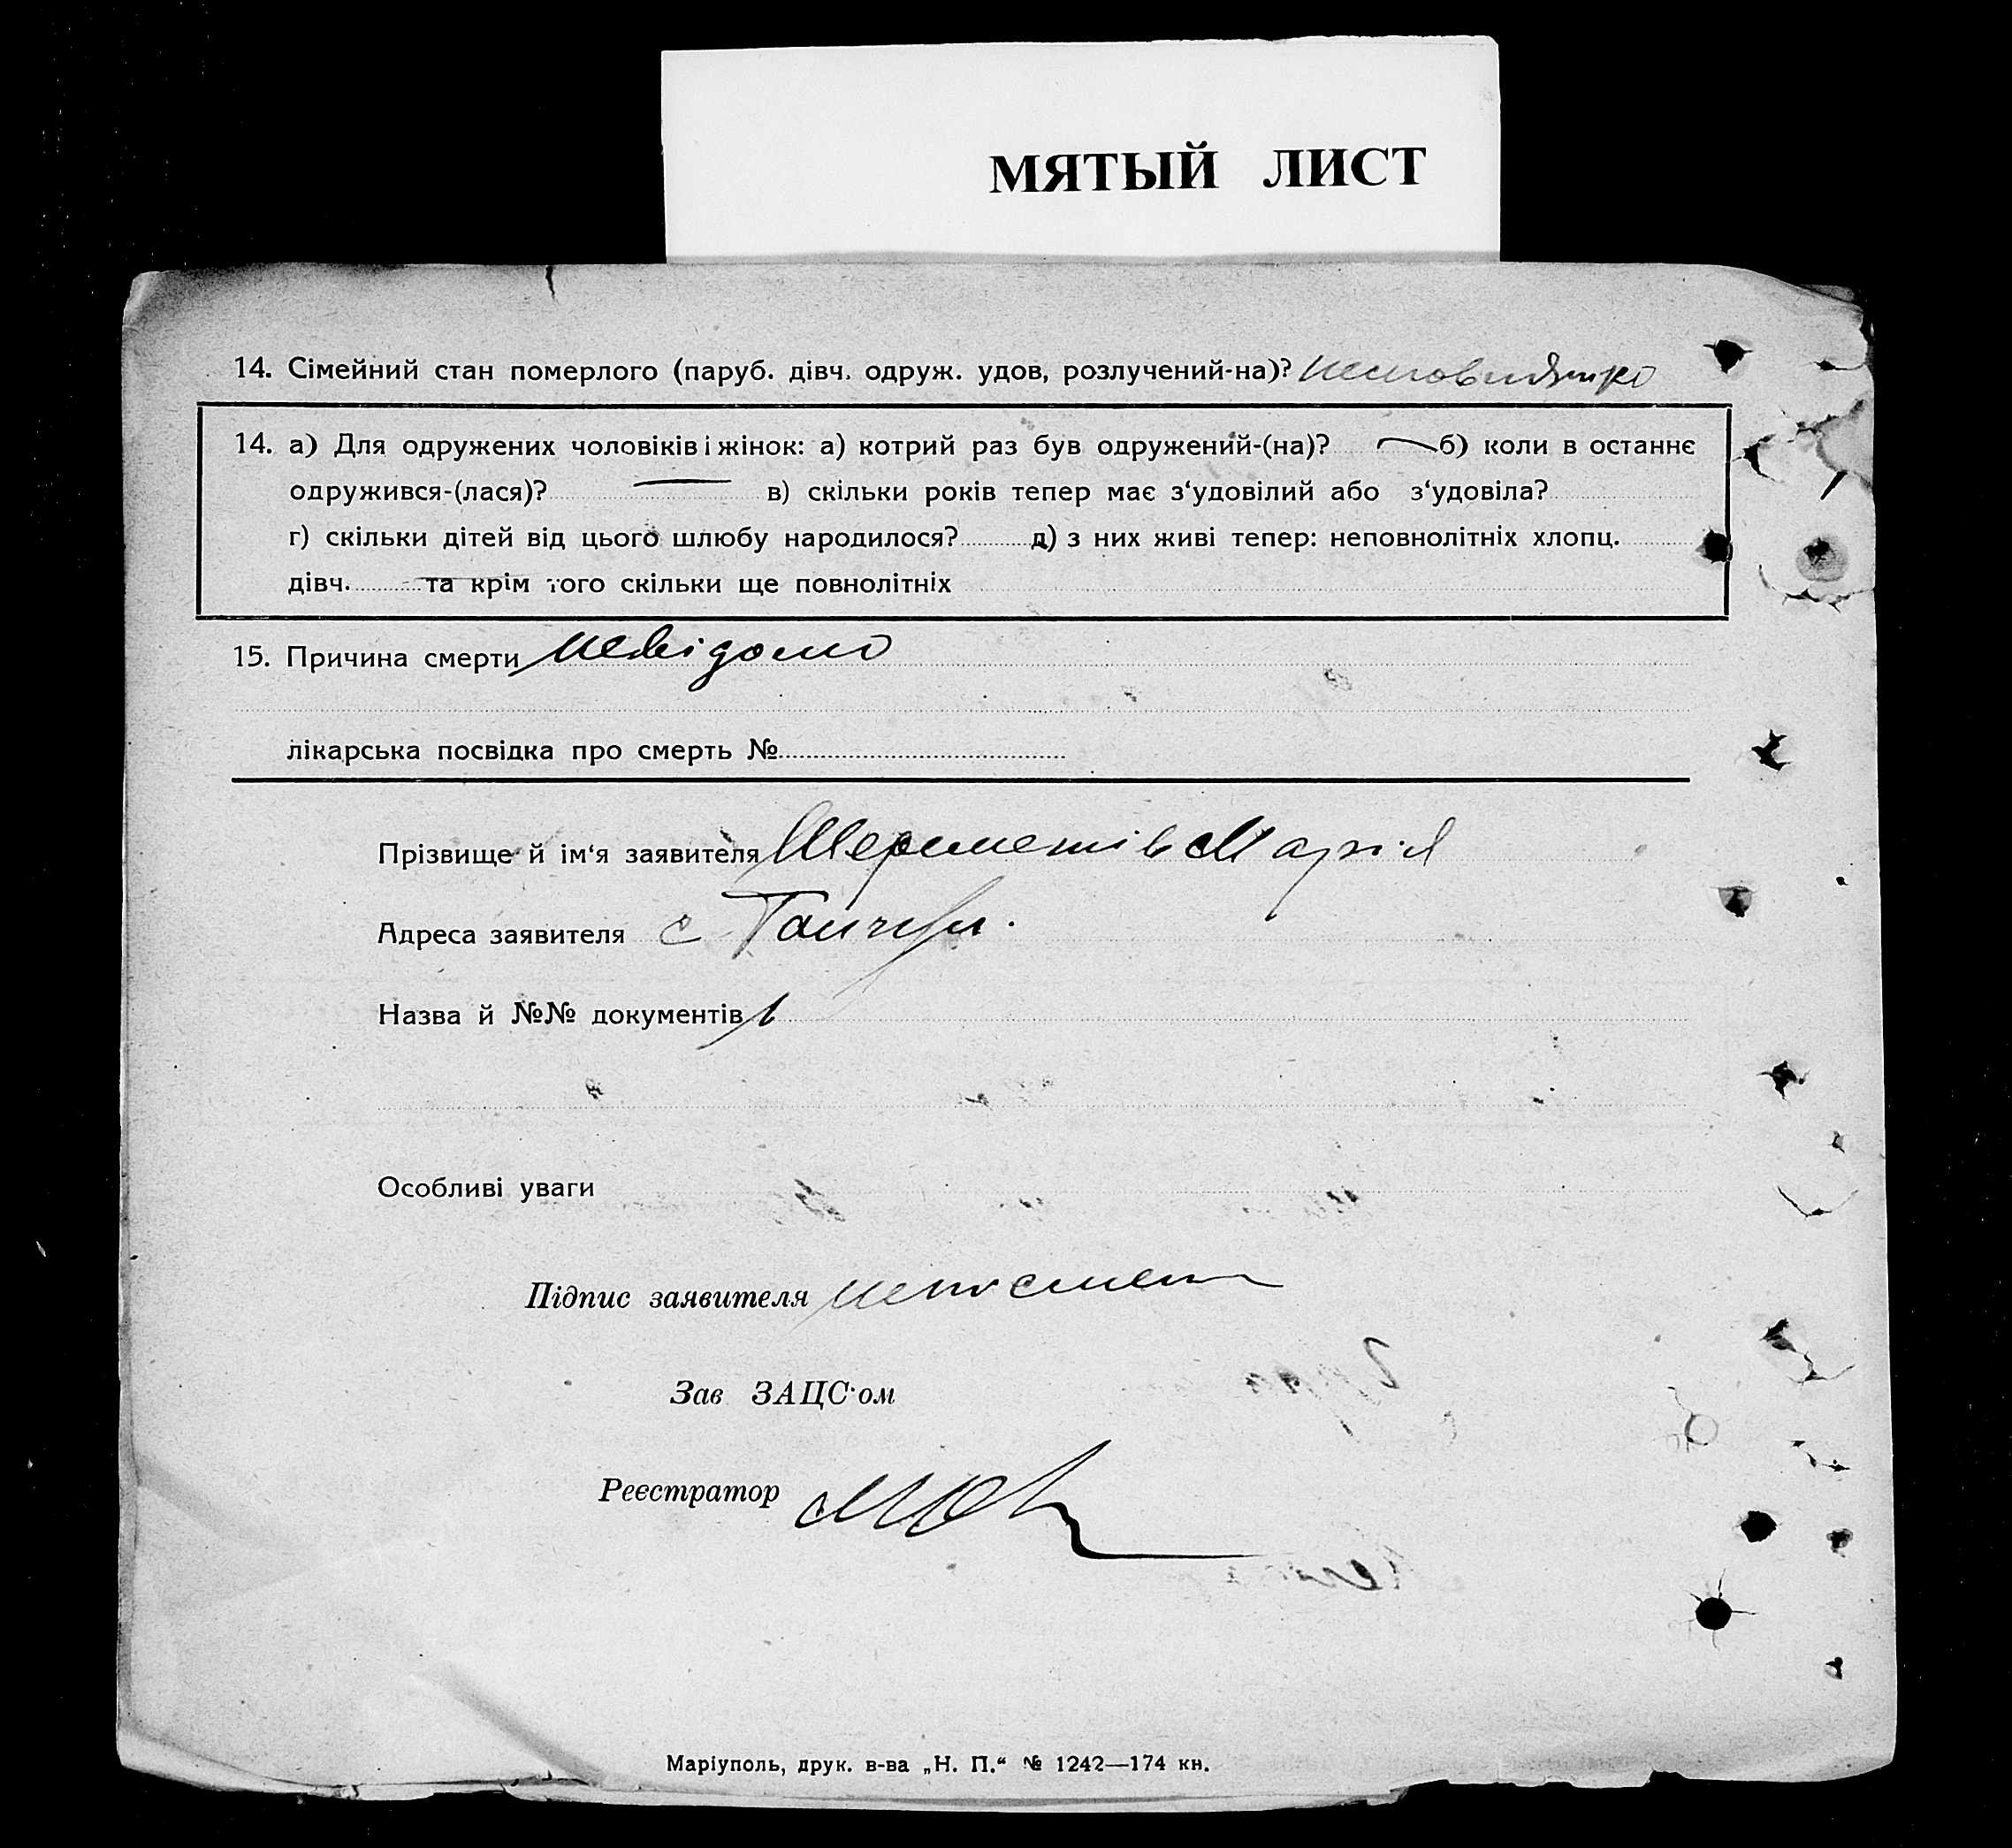 МЯТЫЙ ЛИСТ
14. Сімейний стан померлого (паруб. дівч. одруж. удов, розлучений-на)?
14. а) Для одружених чоловіків і жінок: а) котрий раз був одружений-(на)? б) коли в останнє
одружився-(лася)? в) скільки років тепер має з‘удовілий або з‘удовіла?
г) скільки дітей від цього шлюбу народилося? д) з них живі тепер: неповнолітніх хлопц.
дівч. та крім того скільки ще повнолітніх
15. Причина смерти невідомо
лікарська посвідка про смерть №
Прізвище й ім‘я заявителя Шереметів Марія
Адреса заявителя с. Гайчул.
Назва й №№ документів
Особливі уваги
Підпис заявителя неписмен
Зав ЗАЦС‘ом
Реєстратор
Маріуполь, друк. в-ва „Н. П.“ № 1242—174 кн.